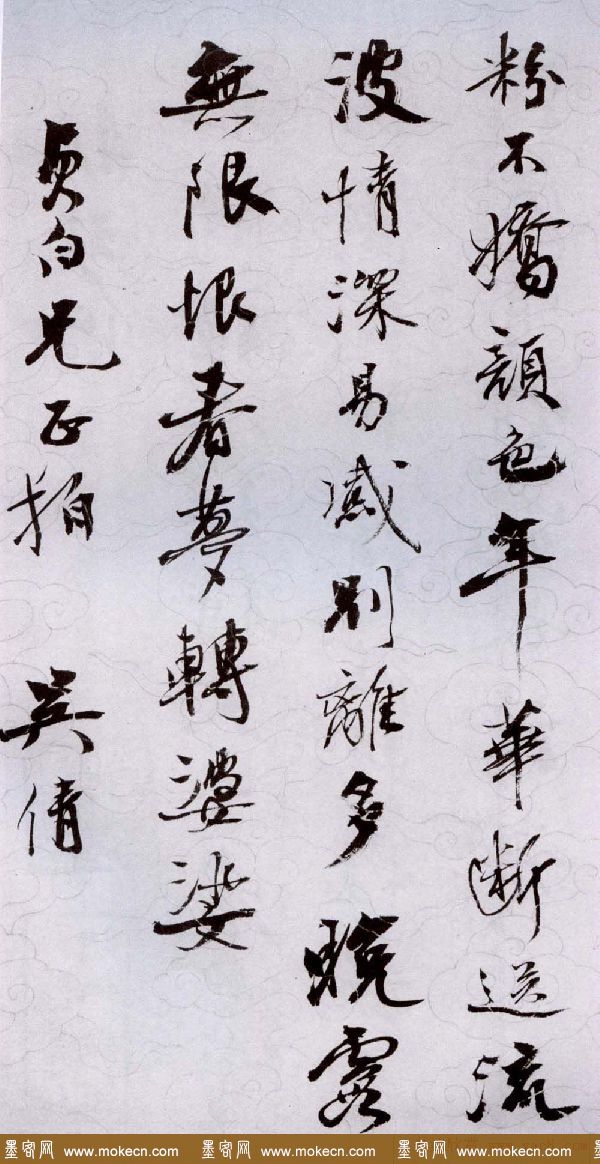 粉不嬌顏色年華斷送流
波情深易感別離多晚露
無限恨看夢轉婆娑
貞白兄正拍 吳倩
墨客网 www.mokecn.com 墨客网 www.mokecn.com 墨客网 www.mokecn.com